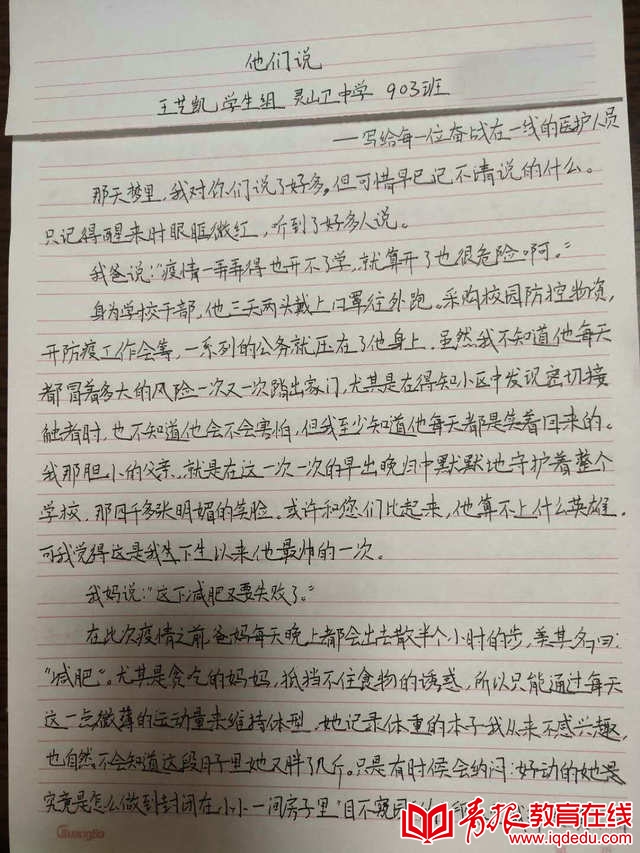 他们说
王艺凯 学生组 灵山卫中学 903班
——写给每一位奋战在一线的医护人员
那天梦里,我对你们说了好多,但可惜早已记不清说的什么。
只记得醒来时眼眶微红,听到了好多人说。
我爸说:"疫情一弄弄得也开不了学,就算开了也很危险啊。"
身为学校干部,他三天两头戴上口罩往外跑。采购校园防控物资,
开防疫工作会等,一系列的公务就压在了他身上。虽然我不知道他每天
都冒着多大的风险一次又一次踏出家门,尤其是在得知小区中发现密切接
触者时,也不知道他会不会害怕,但我至少知道他每天都是笑着回来的。
我那胆小的父亲,就是在这一次一次的早出晚归中默默地守护着整个
学校,那四千多张明媚的笑脸。或许和您们比起来,他算不上什么英雄,
可我觉得这是我生下生以来他最帅的一次。
我妈说:"这下减肥又要失败了。"
在此次疫情之前,爸妈每天晚上都会出去散半个小时的步,美其名曰:
"减肥"。尤其是贪吃的妈妈,抵挡不住食物的诱惑,所以只能通过每天
这一点微薄的运动量来维持体型,她记录体重的本子我从来不感兴趣,
也自然不会知道这段日子里她又胖了几斤。只是有时候会纳闷:好动的她是
究竟是怎么做到封闭在小小一间房子里"目不窥园
Guangbo
青报 教育在线
www.iqdedu.com